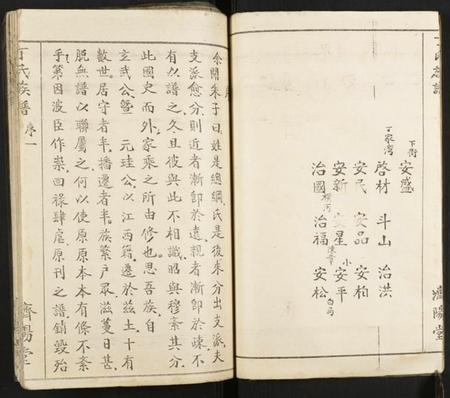 丁氏族譜
下街
安盛
丁家灣
啓材 斗山 治洪
安民 安品 安柏
安新 星 小 安平
治國 橫河 治福 陳章 安松 白局
濟陽堂
序
余聞朱子曰姓是總綱氏是後來分出支派夫
支派愈分則近者漸即於遠親者漸即於疎不
有以譜之久且彼與此不相識昭與穆紊其分
此國史而外家乘之所由修也思吾族自
玄武公曁 元珪公以江西籍遷於兹土十有
數世居守者半播遷者半族繁戶眾滋蔓日甚
脫無譜以聯屬之何以使原原本本有條不紊
乎第因波臣作祟回祿肆虐原刊之譜銷毀殆
丁氏族譜 序 一
濟陽堂